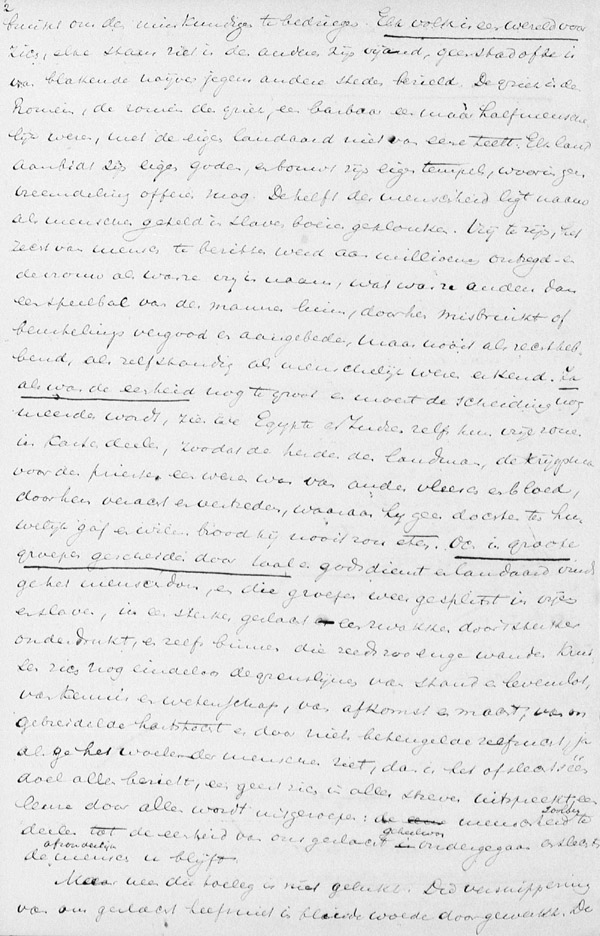 2
bruikt om de min kundige te bedriegen. Elk volk is een wereld voor
zich, elke staat ziet in de andere zijn vijand, geen stad ofze is
van blakende naijver jegens andere steden bezield. De griek is den
Romein, de romein den griek, een barbaar een maar half mensche
lijk wezen, met de eigen landaard niet van eene teelt. Elk land
aanbidt zijn eigen goden, en bouwt zijn eigen tempels, waarin geen
vreemdeling offeren mag. De helft der menschheid ligt naauw
als menschen geteld in slaven boeien geklonken. Vrij te zijn, het
recht van mensch te bezitten werd aan millioenen ontzegd en
de vrouw al ware vrij in naam, wat ware anders dan
een speelbal van der mannen luim, door hen misbruikt of
beurtelings vergood en aangebeden, maar nooit als recht heb
bend, als zelfstandig als menschelijk wezen erkend. Ja
als was de eenheid nog te groot en moest de scheiding nog
meerder worden, zien we Egypte en Indie zelfs hun vrije zonen
in Kaste deelen, zoodat de herder den landman, de krijgsman
voor den priester een wezen was van ander vleesch en bloed,
door hen veracht en vertreden, waaraan hij geen dochter ten hu
welijk gaf en wiens brood hij nooit zou eten. Ook in groote
groepen gescheiden door taal en godsdienst en landaard vindt
ge het menschdom, en die groepen weer gesplitst in vrijen
en slaven, in een sterker geslacht en een zwakker door 't sterker
onderdrukt, en zelfs binnen die reeds zoo enge wanden kruis
sen zich nog eindeloos de grenslijnen van stand en levenslot,
van kennis en wetenschap, van afkomst en macht, van on
gebreidelde hartstocht en door niets beteugelde zelfzucht, ja
als ge het woelen der menschen ziet, dan is het of slechts één
doel allen bezielt, een geest zich in aller streven uitspreekt, een
leuze door allen wordt uitgeroepen: menschheid te
deelen tot de eenheid van ons geslacht geheel zou ondergegaan en slechts
afzonderlijk
de mensch u blijft.
Maar neen die toeleg is niet gelukt. Die versnippering
van ons geslacht heeft niet in blinde woede doorgewerkt. De